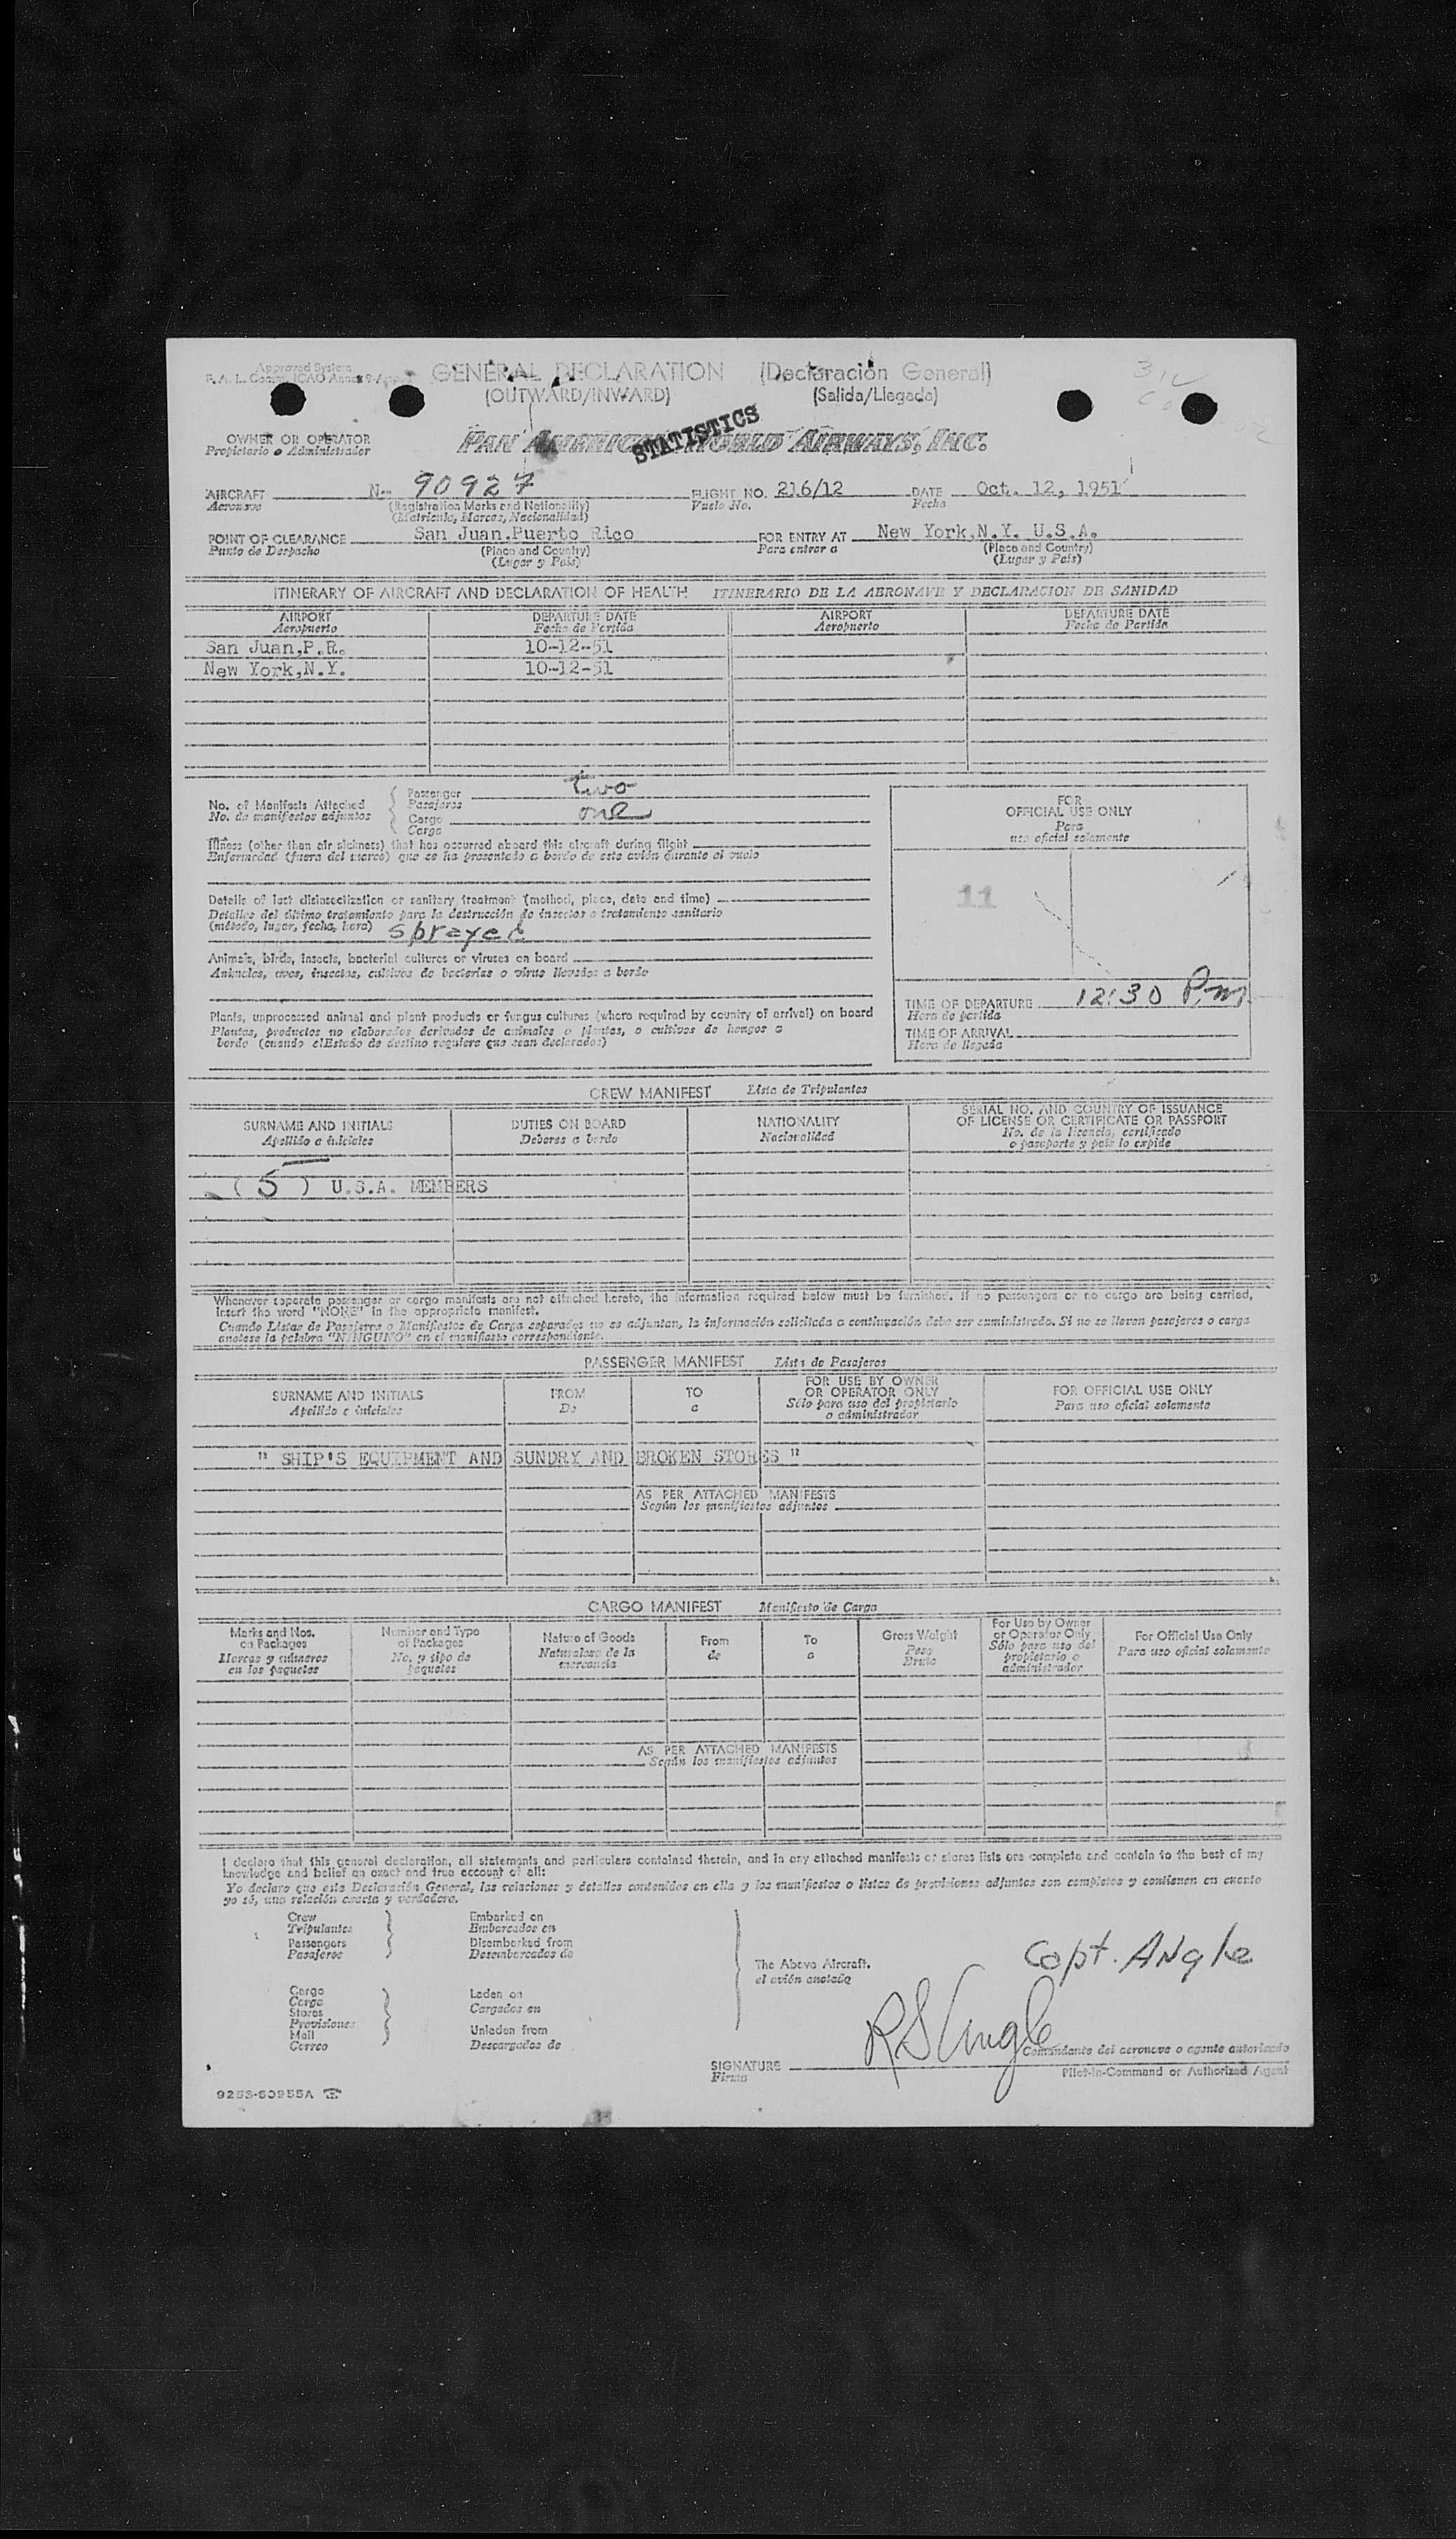 Approved System
GENERAL DECLARATION (Declaración General)
(OUTWARD/INWARD) (Salida/Llegada)
STATISTICS
OWNER OR OPERATOR PAN AMERICAN WORLD AIRWAYS, INC.
Propietario o Administrador
AIRCRAFT N- 90927 FLIGHT NO. 216/12 DATE Oct. 12, 1951
Aeronave (Registration Marks and Nationality) Vuelo No. Fecha
(Matricula, Marcas, Nacionalidad)
POINT OF CLEARANCE San Juan.Puerto Rico FOR ENTRY AT New York,N.Y. U.S.A.
Punto de Despacho (Place and Country) Para entrar a (Place and Country)
(Lugar y País) (Lugar y País)
ITINERARY OF AIRCRAFT AND DECLARATION OF HEALTH ITINERARIO DE LA AERONAVE Y DECLARACION DE SANIDAD
AIRPORT DEPARTURE DATE AIRPORT DEPARTURE DATE
Aeropuerto Fecha de Partida Aeropuerto Fecha de Partida
San Juan,P.R. 10-12-51
New York,N.Y. 10-12-51
No. of Manifests Attached Passenger two
No. de manifiestos adjuntos Pasajeros
Cargo one
Carga
Illness (other than air sickness) that has occurred aboard this aircraft during flight
Enfermedad (fuera del mareo) que se ha presentado a bordo de este avión durante el vuelo
Details of last disinsectization or sanitary treatment (method, place, date and time)
Detalles del último tratamiento para la destrucción de insectos o tratamiento sanitario
(método, lugar, fecha, hora) sprayed
Animals, birds, insects, bacterial cultures or viruses on board
Animales, aves, insectos, cultivos de bacterias o virus llevados a bordo
Plants, unprocessed animal and plant products or fungus cultures (where required by country of arrival) on board
Plantas, productos no elaborados derivados de animales o plantas, o cultivos de hongos a
bordo (cuando el Estado de destino requiera que sean declarados)
FOR
OFFICIAL USE ONLY
Para
uso oficial solamente
11
TIME OF DEPARTURE 12:30 P.m.
Hora de partida
TIME OF ARRIVAL
Hora de llegada
CREW MANIFEST Lista de Tripulantes
SURNAME AND INITIALS DUTIES ON BOARD NATIONALITY SERIAL NO. AND COUNTRY OF ISSUANCE
OF LICENSE OR CERTIFICATE OR PASSPORT
Apellido e iniciales Deberes a bordo Nacionalidad No. de la licencia, certificado
o pasaporte y país lo expide
( 5 ) U.S.A. MEMBERS
Whenever separate passenger or cargo manifests are not attached hereto, the information required below must be furnished. If no passengers or no cargo are being carried,
insert the word "NONE" in the appropriate manifest.
Cuando Listas de Pasajeros o Manifiestos de Carga separados no se adjuntan, la información solicitada a continuación debe ser suministrada. Si no se lleven pasajeros o carga
anótese la palabra "NINGUNO" en el manifiesto correspondiente.
PASSENGER MANIFEST Lista de Pasajeros
SURNAME AND INITIALS FROM TO FOR USE BY OWNER
OR OPERATOR ONLY FOR OFFICIAL USE ONLY
Apellido e iniciales De a Sólo para uso del propietario
o administrador Para uso oficial solamente
" SHIP'S EQUIPMENT AND SUNDRY AND BROKEN STORES "
AS PER ATTACHED MANIFESTS
Según los manifiestos adjuntos
CARGO MANIFEST Manifiesto de Carga
Marks and Nos. on Packages Number and Type of Packages Nature of Goods From To Gross Weight For Use by Owner or Operator Only For Official Use Only
Marcas y números en los paquetes No. y tipo de paquetes Naturaleza de la mercancía de a Peso Bruto Sólo para uso del propietario o administrador Para uso oficial solamente
AS PER ATTACHED MANIFESTS
Según los manifiestos adjuntos
I declare that this general declaration, all statements and particulars contained therein, and in any attached manifests or stores lists are complete and contain to the best of my
knowledge and belief an exact and true account of all:
Yo declaro que esta Declaración General, las relaciones y detalles contenidos en ella y los manifiestos o listas de provisiones adjuntos son completos y contienen en cuanto
yo sé, una relación exacta y verdadera.
Crew Embarked on
Tripulantes Embarcados en
Passengers Disembarked from
Pasajeros Desembarcados de
The Above Aircraft.
el avión anotado
Cargo Laden on
Carga Cargados en
Stores
Provisiones
Mail Unladen from
Correo Descargados de
Capt. Angle
RS Angle
Comandante del aeronave o agente autorizado
SIGNATURE
Firma Pilot-in-Command or Authorized Agent
9253-60955A